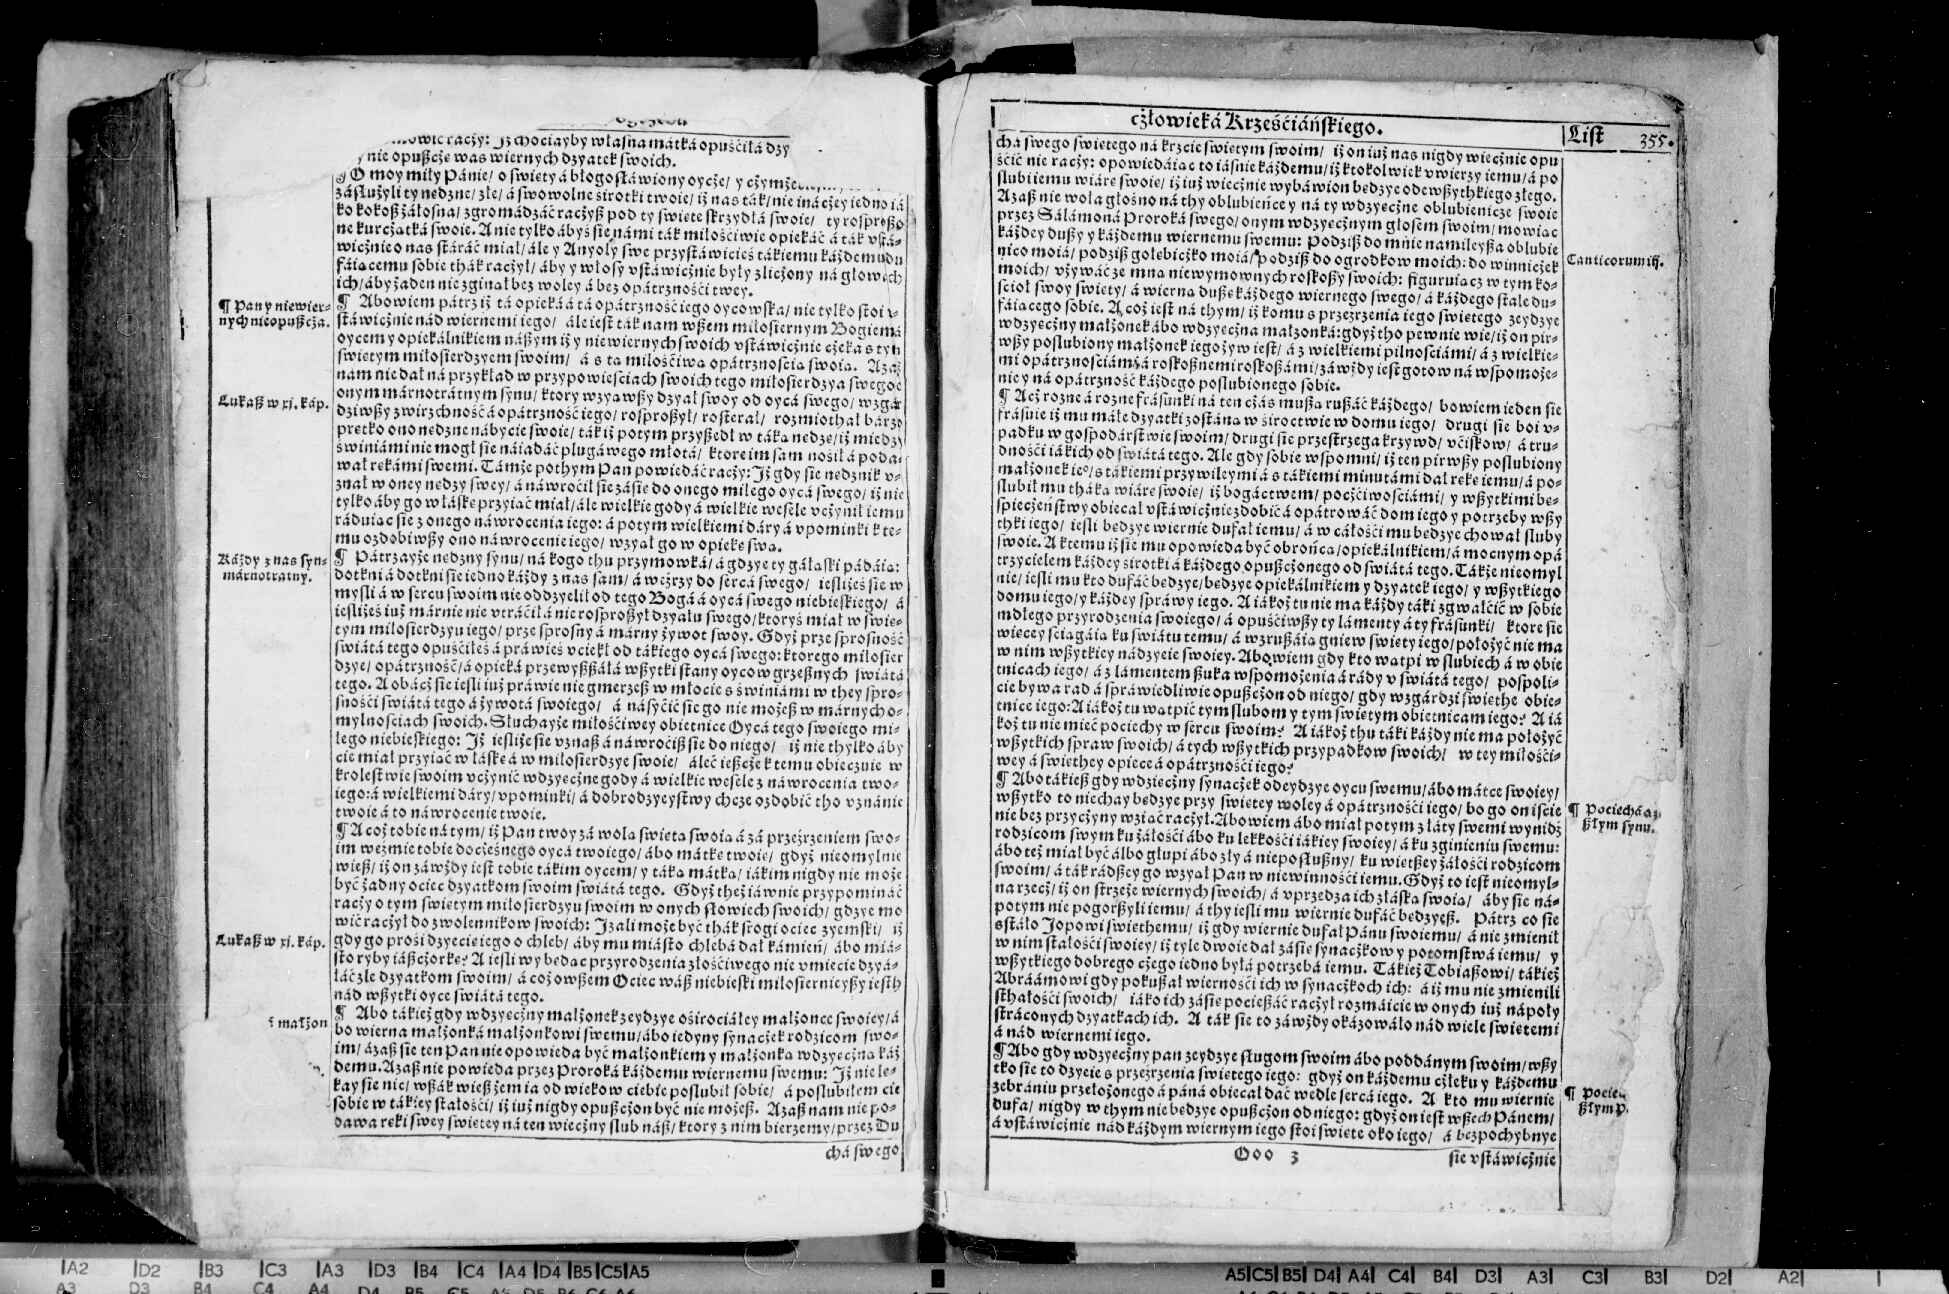 mowić raczy: Iż chociayby własna mátká opuśćiłá dzy
nie opuszcże was wiernych dzyatek swoich.
¶ O moy miły Pánie/ o święty á błogosłáwiony oycże/ y cżym
zásłużyli ty nędzne/ złe/ á swowolne sirotki twoie/ iż nas ták/ nie inácżey iedno iá
ko kokosz żáłosna/ zgromádzáć racżysz pod ty święte skrzydłá swoie/ ty rosproszo
ne kurcżątká swoie. A nie tylko ábyś się námi ták miłośćiwie opiekáć á ták vstá-
wicżnie o nas stáráć miał/ ále y Anyoły swe przystáwićieś tákiemu káżdemu du
fáiącemu sobie thák racżył/ áby y włosy vstáwicżnie były zlicżony ná głowách
ich/ áby żaden nie zginął bez woley á bez opátrznośći twey.
¶ Pan y niewier-
nych nieopuszcża.
¶ Abowiem pátrz iż tá opieká á tá opátrzność iego oycowska/ nie tylko stoi v-
stáwicżnie nád wiernemi iego/ ále iest ták nam wszem miłosiernym Bogiem á
oycem y opiekálnikiem nászym iż y niewiernych swoich vstáwicżnie cżeka s tym
świętym miłosierdzyem swoim/ á s tą miłośćiwą opátrznośćią swoią. Azaż
nam nie dał ná przykład w przypowieśćiach swoich tego miłosierdzya swego
Lukasz w xj. káp.
onym márnotratnym synu/ ktory wzyąwszy dzyał swoy od oycá swego/ wzgár
dziwszy zwirzchność á opátrzność iego/ rosproszył/ rosterał/ rozmiothał bárzo
prętko ono nędzne nábyćie swoie/ ták iż potym przyszedł w táką nędzę/ iż między
świniámi nie mogł się náiádáć plugáwego młotá/ ktore im sam nośił á podá-
wał rękámi swemi. Támże pothym Pan powiedáć racży: Iż gdy się nędznik v-
znał w oney nędzy swey/ á náwroćił się zásię do onego miłego oycá swego/ iż nie
tylko áby go w łáskę przyiąć miał/ ále wielkie gody á wielkie wesele vcżynił iemu
ráduiąc się z onego náwrocenia iego: á potym wielkiemi dáry á vpominki k te-
mu ozdobiwszy ono náwrocenie iego/ wzyął go w opiekę swą.
Káżdy z nas syn-
márnotratny.
¶ Pátrzayże nędzny synu/ ná kogo thu przymowká/ á gdzye ty gáłąski pádáią:
dotkni á dotkni się iedno káżdy z nas sam/ á weżrzy do sercá swego/ iesliżeś się w
myśli á w sercu swoim nie oddzyelił od tego Bogá á oycá swego niebieskiego/ á
iesliżeś iuż márnie nie vtráćił á nie rosproszył dzyału swego/ ktoryś miał w świę-
tym miłosierdzyu iego/ prze sprosny á márny żywot swoy. Gdyż prze sprosność
świátá tego opuśćiłeś á práwieś vćiekł od tákiego oycá swego: ktorego miłosier
dzye/ opátrzność/ á opieká przewyszszáłá wszytki stany oycow grzesznych świátá
tego. A obácż się iesli iuż práwie nie gmerzesz w młoćie s świniámi w they spro-
snośći świátá tego á żywotá swoiego/ á násyćić się go nie możesz w márnych o-
mylnośćiach swoich. Słuchayże miłośćiwey obietnice Oycá tego swoiego mi-
łego niebieskiego: Iż iesliże się vznasz á náwroćisz się do niego/ iż nie thylko áby
ćię miał przyiąć w łáskę á w miłosierdzye swoie/ áleć ieszcże k temu obiecżuie w
krolestwie swoim vcżynić wdzyęcżne gody á wielkie wesele z náwrocenia two-
iego: á wielkiemi dáry/ vpominki/ á dobrodzyeystwy chce ozdobić tho vznánie
twoie á to náwrocenie twoie.
¶ A coż tobie ná tym/ iż Pan twoy zá wolą świętą swoią á zá przeżrzeniem swo-
im weżmie tobie docżesnego oycá twoiego/ ábo mátkę twoię/ gdyż nieomylnie
wiesz/ iż on záwżdy iest tobie tákim oycem/ y táką mátką/ iákim nigdy nie może
być żadny oćiec dzyatkom swoim świátá tego. Gdyż theż iáwnie przypomináć
racży o tym świętym miłosierdzyu swoim w onych słowiech swoich/ gdzye mo
wić racżył do zwolennikow swoich: Izali może być thák srogi oćiec zyemski/ iż
Lukasz w xj. káp.
gdy go prosi dzyećię iego o chleb/ áby mu miásto chlebá dał kámień/ ábo miá-
sto ryby iászcżorkę? A iesli wy będąc przyrodzenia złośćiwego nie vmiećie dzyá-
łáć źle dzyatkom swoim/ á coż owszem Oćiec wász niebieski miłosiernieyszy iesth
nád wszytki oyce świátá tego.
małżon
¶ Abo tákież gdy wdzyęcżny małżonek zeydzye ośiroćiáłey małżonce swoiey/ á
bo wierna małżonká małżonkowi swemu/ ábo iedyny synacżek rodzicom swo-
im/ ázasz się ten Pan nie opowieda być małżonkiem y małżonką wdzyęcżną káż
demu. Azasz nie powieda przez Proroká káżdemu wiernemu swemu: Iż nie lę-
kay się nic/ wszák wiesz żem ia od wiekow ćiebie poślubił sobie/ á poślubiłem ćię
sobie w tákiey stałośći/ iż iuż nigdy opuszcżon być nie możesz. Azasz nam nie po-
dawa ręki swey świętey ná ten wiecżny ślub nász/ ktory z nim bierzemy/ przez Du
chá swego
cżłowieká Krześćiáńskiego.
List 355.
chá swego świętego ná krzćie świętym swoim/ iż on iuż nas nigdy wiecżnie opu
śćić nie racży: opowiedáiąc to iáśnie káżdemu/ iż ktokolwiek vwierzy iemu/ á po
ślubi iemu wiárę swoię/ iż iuż wiecżnie wybáwion będzye ode wszythkiego złego.
Azasz nie woła głośno ná thy oblubieńce y ná ty wdzyęcżne oblubienicze swoie
przez Sálámoná Proroká swego/ onym wdzyęcżnym głosem swoim/ mowiąc
káżdey duszy y káżdemu wiernemu swemu: Podziż do mnie namileysza oblubie
Canticorum iiij.
nico moiá/ podziż gołębicżko moiá/ podziż do ogrodkow moich: do winnicżek
moich/ vżywáć ze mną niewymownych roskoszy swoich: figuruiącz w tym ko-
śćioł swoy święty/ á wierną duszę káżdego wiernego swego/ á káżdego stale du-
fáiącego sobie. A coż iest ná thym/ iż komu s przeżrzenia iego świętego zeydzye
wdzyęcżny małżonek ábo wdzyęcżna małżonká: gdyż tho pewnie wie/ iż on pir-
wszy poślubiony małżonek iego żyw iest/ á z wielkiemi pilnośćiámi/ á z wielkie-
mi opátrznośćiámi/ á roskosznemi roskoszámi/ záwżdy iest gotow ná wspomoże-
nie y ná opátrzność káżdego poślubionego sobie.
¶ Acż rozne á rozne frásunki ná ten cżás muszą ruszáć káżdego/ bowiem ieden się
frásuie iż mu máłe dzyatki zostáną w śiroctwie w domu iego/ drugi się boi v-
padku w gospodárstwie swoim/ drugi się przestrzega krzywd/ vćiskow/ á tru-
dnośći iákich od świátá tego. Ale gdy sobie wspomni/ iż ten pirwszy poślubiony
małżonek ie°/ s tákiemi przywileymi á s tákiemi minutámi dał rękę iemu/ á po-
ślubił mu tháką wiárę swoię/ iż bogáctwem/ pocżćiwośćiámi/ y wszytkimi be-
śpiecżeństwy obiecał vstáwicżnie zdobić á opátrowáć dom iego y potrzeby wszy
thki iego/ iesli będzye wiernie dufał iemu/ á w cáłośći mu będzye chował śluby
swoie. A k temu iż się mu opowieda być obrońcą/ opiekálnikiem/ á mocnym opá
trzyćielem káżdey śirotki á káżdego opuszcżonego od świátá tego. Tákże nieomyl
nie/ iesli mu kto dufáć będzye/ będzye opiekálnikiem y dzyatek iego/ y wszytkiego
domu iego/ y káżdey spráwy iego. A iákoż tu nie ma káżdy táki zgwałćić w sobie
mdłego przyrodzenia swoiego/ á opuśćiwszy ty lámenty á ty frásunki/ ktore się
więcey śćiągáią ku świátu temu/ á wzruszáią gniew święty iego/ położyć nie ma
w nim wszytkiey nádzyeie swoiey. Abowiem gdy kto wątpi w ślubiech á w obie
tnicach iego/ á z lámentem szuka wspomożenia á rády v świátá tego/ pospoli-
ćie bywa rad á spráwiedliwie opuszcżon od niego/ gdy wzgárdzi święthe obie-
tnice iego: A iákoż tu wątpić tym ślubom y tym świętym obietnicam iego? A iá
koż tu nie mieć poćiechy w sercu swoim? A iákoż thu táki káżdy nie ma położyć
wszytkich spraw swoich/ á tych wszytkich przypadkow swoich/ w tey miłośći-
wey á święthey opiece á opátrznośći iego?
¶ Abo tákiesz gdy wdzięcżny synacżek odeydzye oycu swemu/ ábo mátce swoiey/
wszytko to niechay będzye przy świętey woley á opátrznośći iego/ bo go on iśćie
¶ Poćiechá
zszłym synu.
nie bez przycżyny wziąć racżył. Abowiem ábo miał potym z láty swemi wynidz
rodzicom swym ku żáłośći ábo ku lekkośći iákiey swoiey/ á ku zginieniu swemu:
ábo też miał być álbo głupi ábo zły á nieposłuszny/ ku więtszey żáłośći rodzicom
swoim/ á ták rádszey go wzyął Pan w niewinnośći iemu. Gdyż to iest nieomyl-
na rzecż/ iż on strzeże wiernych swoich/ á vprzedza ich z łáską swoią/ áby się ná-
potym nie pogorszyli iemu/ á thy iesli mu wiernie dufáć będzyesz. Pátrz co się
sstáło Jopowi święthemu/ iż gdy wiernie dufał Pánu swoiemu/ á nie zmienił
w nim stałośći swoiey/ iż tyle dwoie dał zásię synacżkow y potomstwá iemu/ y
wszytkiego dobrego cżego iedno byłá potrzebá iemu. Tákież Tobiaszowi/ tákież
Abráámowi gdy pokuszał wiernośći ich w synacżkoch ich: á iż mu nie zmienili
sthałośći swoich/ iáko ich zásię poćieszáć racżył rozmáićie w onych iuż nápoły
stráconych dzyatkach ich. A ták się to záwżdy okázowáło nád wiele świętemi
á nád wiernemi iego.
¶ Abo gdy wdzyęcżny pan zeydzye sługom swoim ábo poddánym swoim/ wszy
tko się to dzyeie s przeżrzenia świętego iego: gdyż on káżdemu cżłeku y káżdemu
¶ Poćie
szłym p.
zebrániu przełożonego á páná obiecał dáć wedle sercá iego. A kto mu wiernie
dufa/ nigdy w thym nie będzye opuszcżon od niego: gdyż on iest wszech Pánem/
á vstáwicżnie nád káżdym wiernym iego stoi święte oko iego/ á bezpochybnye
Ooo 3
się vstáwicżnie
A2 D2 B3 C3 A3 D3 B4 C4 A4 D4 B5 C5 A5
A5 C5 B5 D4 A4 C4 B4 D3 A3 C3 B3 D2 A2
A3 D3 B4 C4 A4 D4 B5 C5